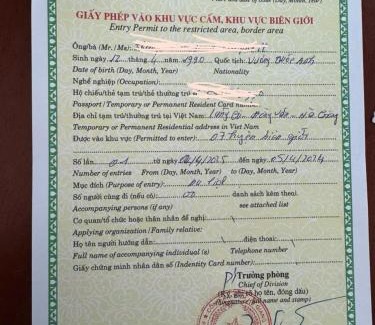 Place and date of issue (Day, Month, Year)
GIẤY PHÉP VÀO KHU VỰC CẤM, KHU VỰC BIÊN GIỚI
Entry Permit to the restricted area, border area
Ông/bà (Mr, Ms):
Sinh ngày 12 tháng 4 năm 1990 Quốc tịch: Vương Quốc Anh
Date of birth (Day, Month, Year) Nationality
Nghề nghiệp (Occupation):
Hộ chiếu/thẻ tạm trú/thẻ thường trú
Passport/ Temporary or Permanent Resident Card number
Địa chỉ tạm trú/thường trú tại Việt Nam: Lũng Cú - Đồng Văn - H. Giang
Temporary or Permanent Residential address in Viet Nam
Được vào khu vực (Permitted to enter): 07 tuyến biên giới
Số lần 01 từ ngày 02/4/2025 đến ngày 05/4/2024
Number of entries From (Day, Month, Year) to (Day, Month, Year)
Mục đích (Purpose of entry) Du lịch
Số người cùng đi (nếu có) 00 danh sách kèm theo:
Accompanying persons (if any) see attached list
Cơ quan/tổ chức hoặc thân nhân đề nghị:
Applying organization/ Family relative:
Họ tên người hướng dẫn: điện thoại:
Full name of accompanying individual (s) Telephone number
Giấy chứng minh nhân dân số (Indentity Card number):
P/ Trưởng phòng
Chief of Division
(Ký, ghi rõ họ tên, đóng dấu)
(Signature, full name and stamp)